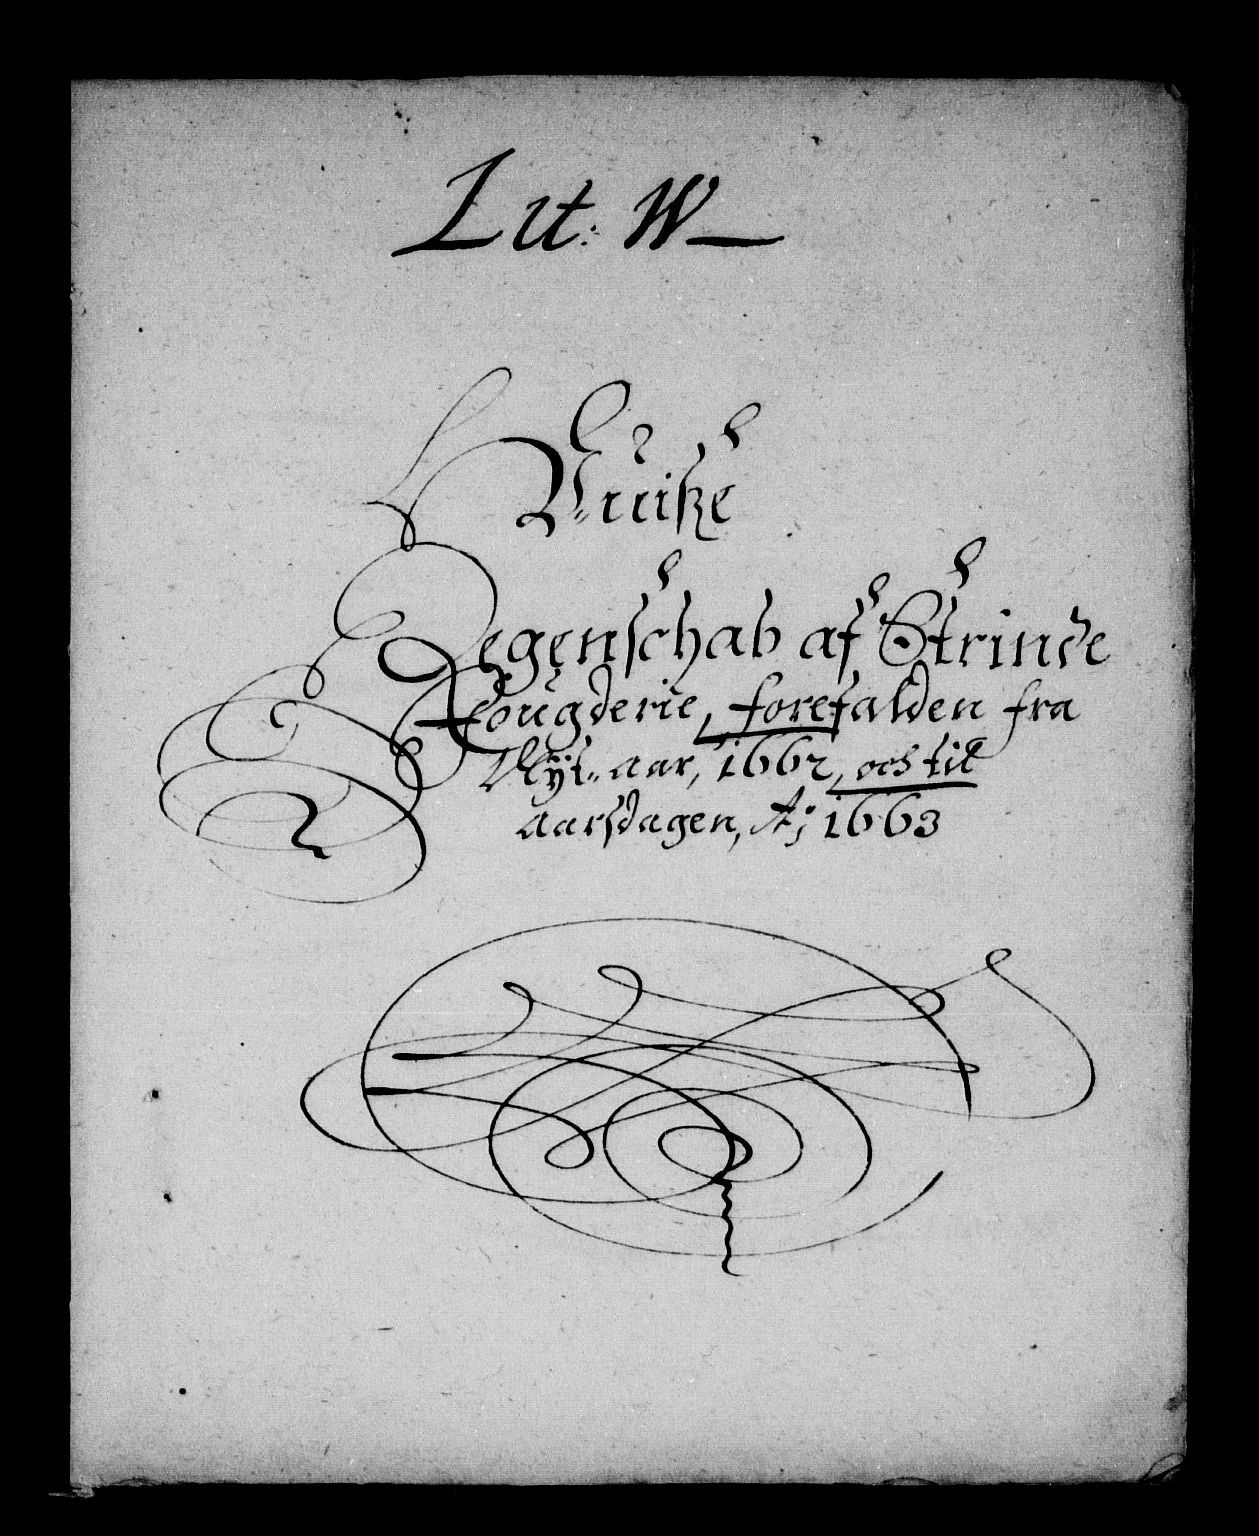 Lit: W
Vuiße
Regenschab af Strinde
Fougderie, forefalden fra
Nyt aar, 1662, och til
aarsdagen, A; 1663